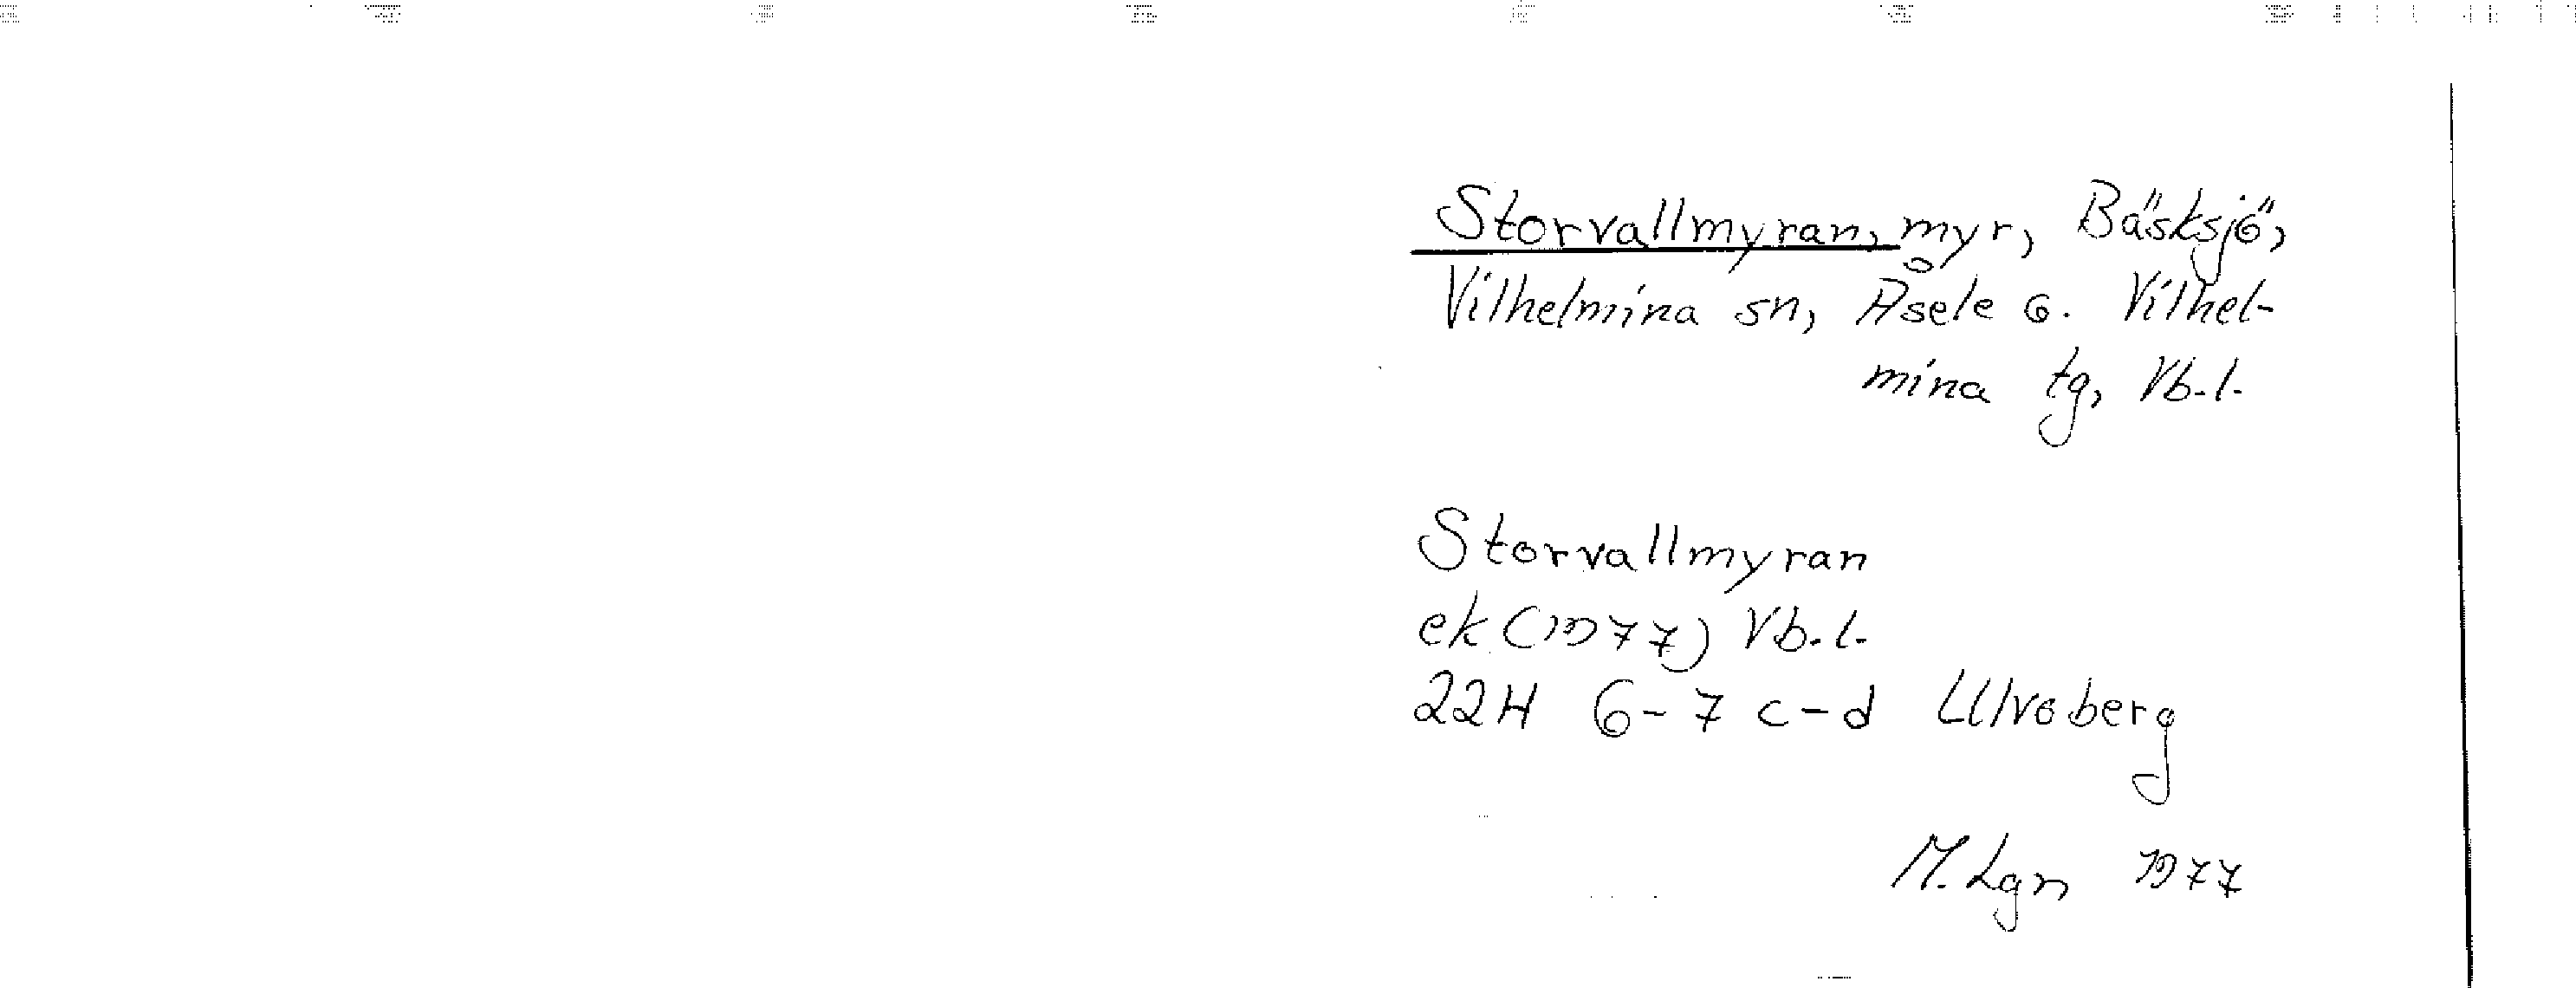 Storvallmyran, myr, Bäsksjö,
Vilhelmina sn, Åsele o. Vilhel-
mina tg, Vb.l.
Storvallmyran
ek (1977) Vb.l.
22H 6-7 c-d Ulvoberg
M. Lgn 1977